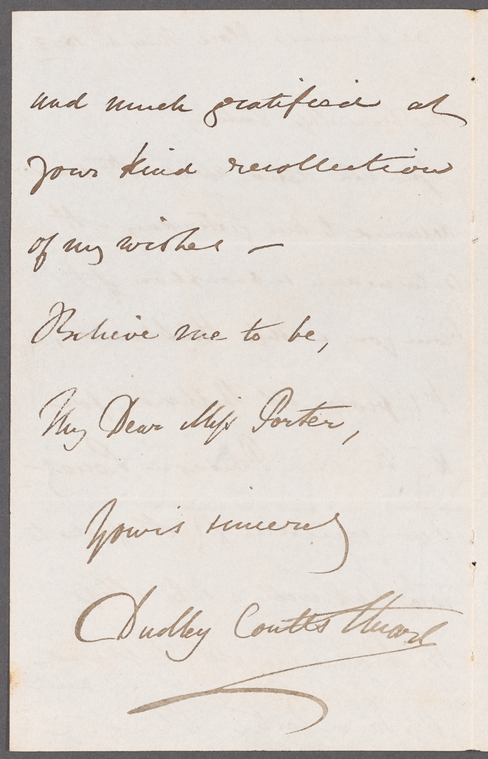 and much gratified at
your kind recollection
of my wishes —
Believe me to be,
My Dear Miss Porter,
Yours sincerely
Dudley Coutts Stuart